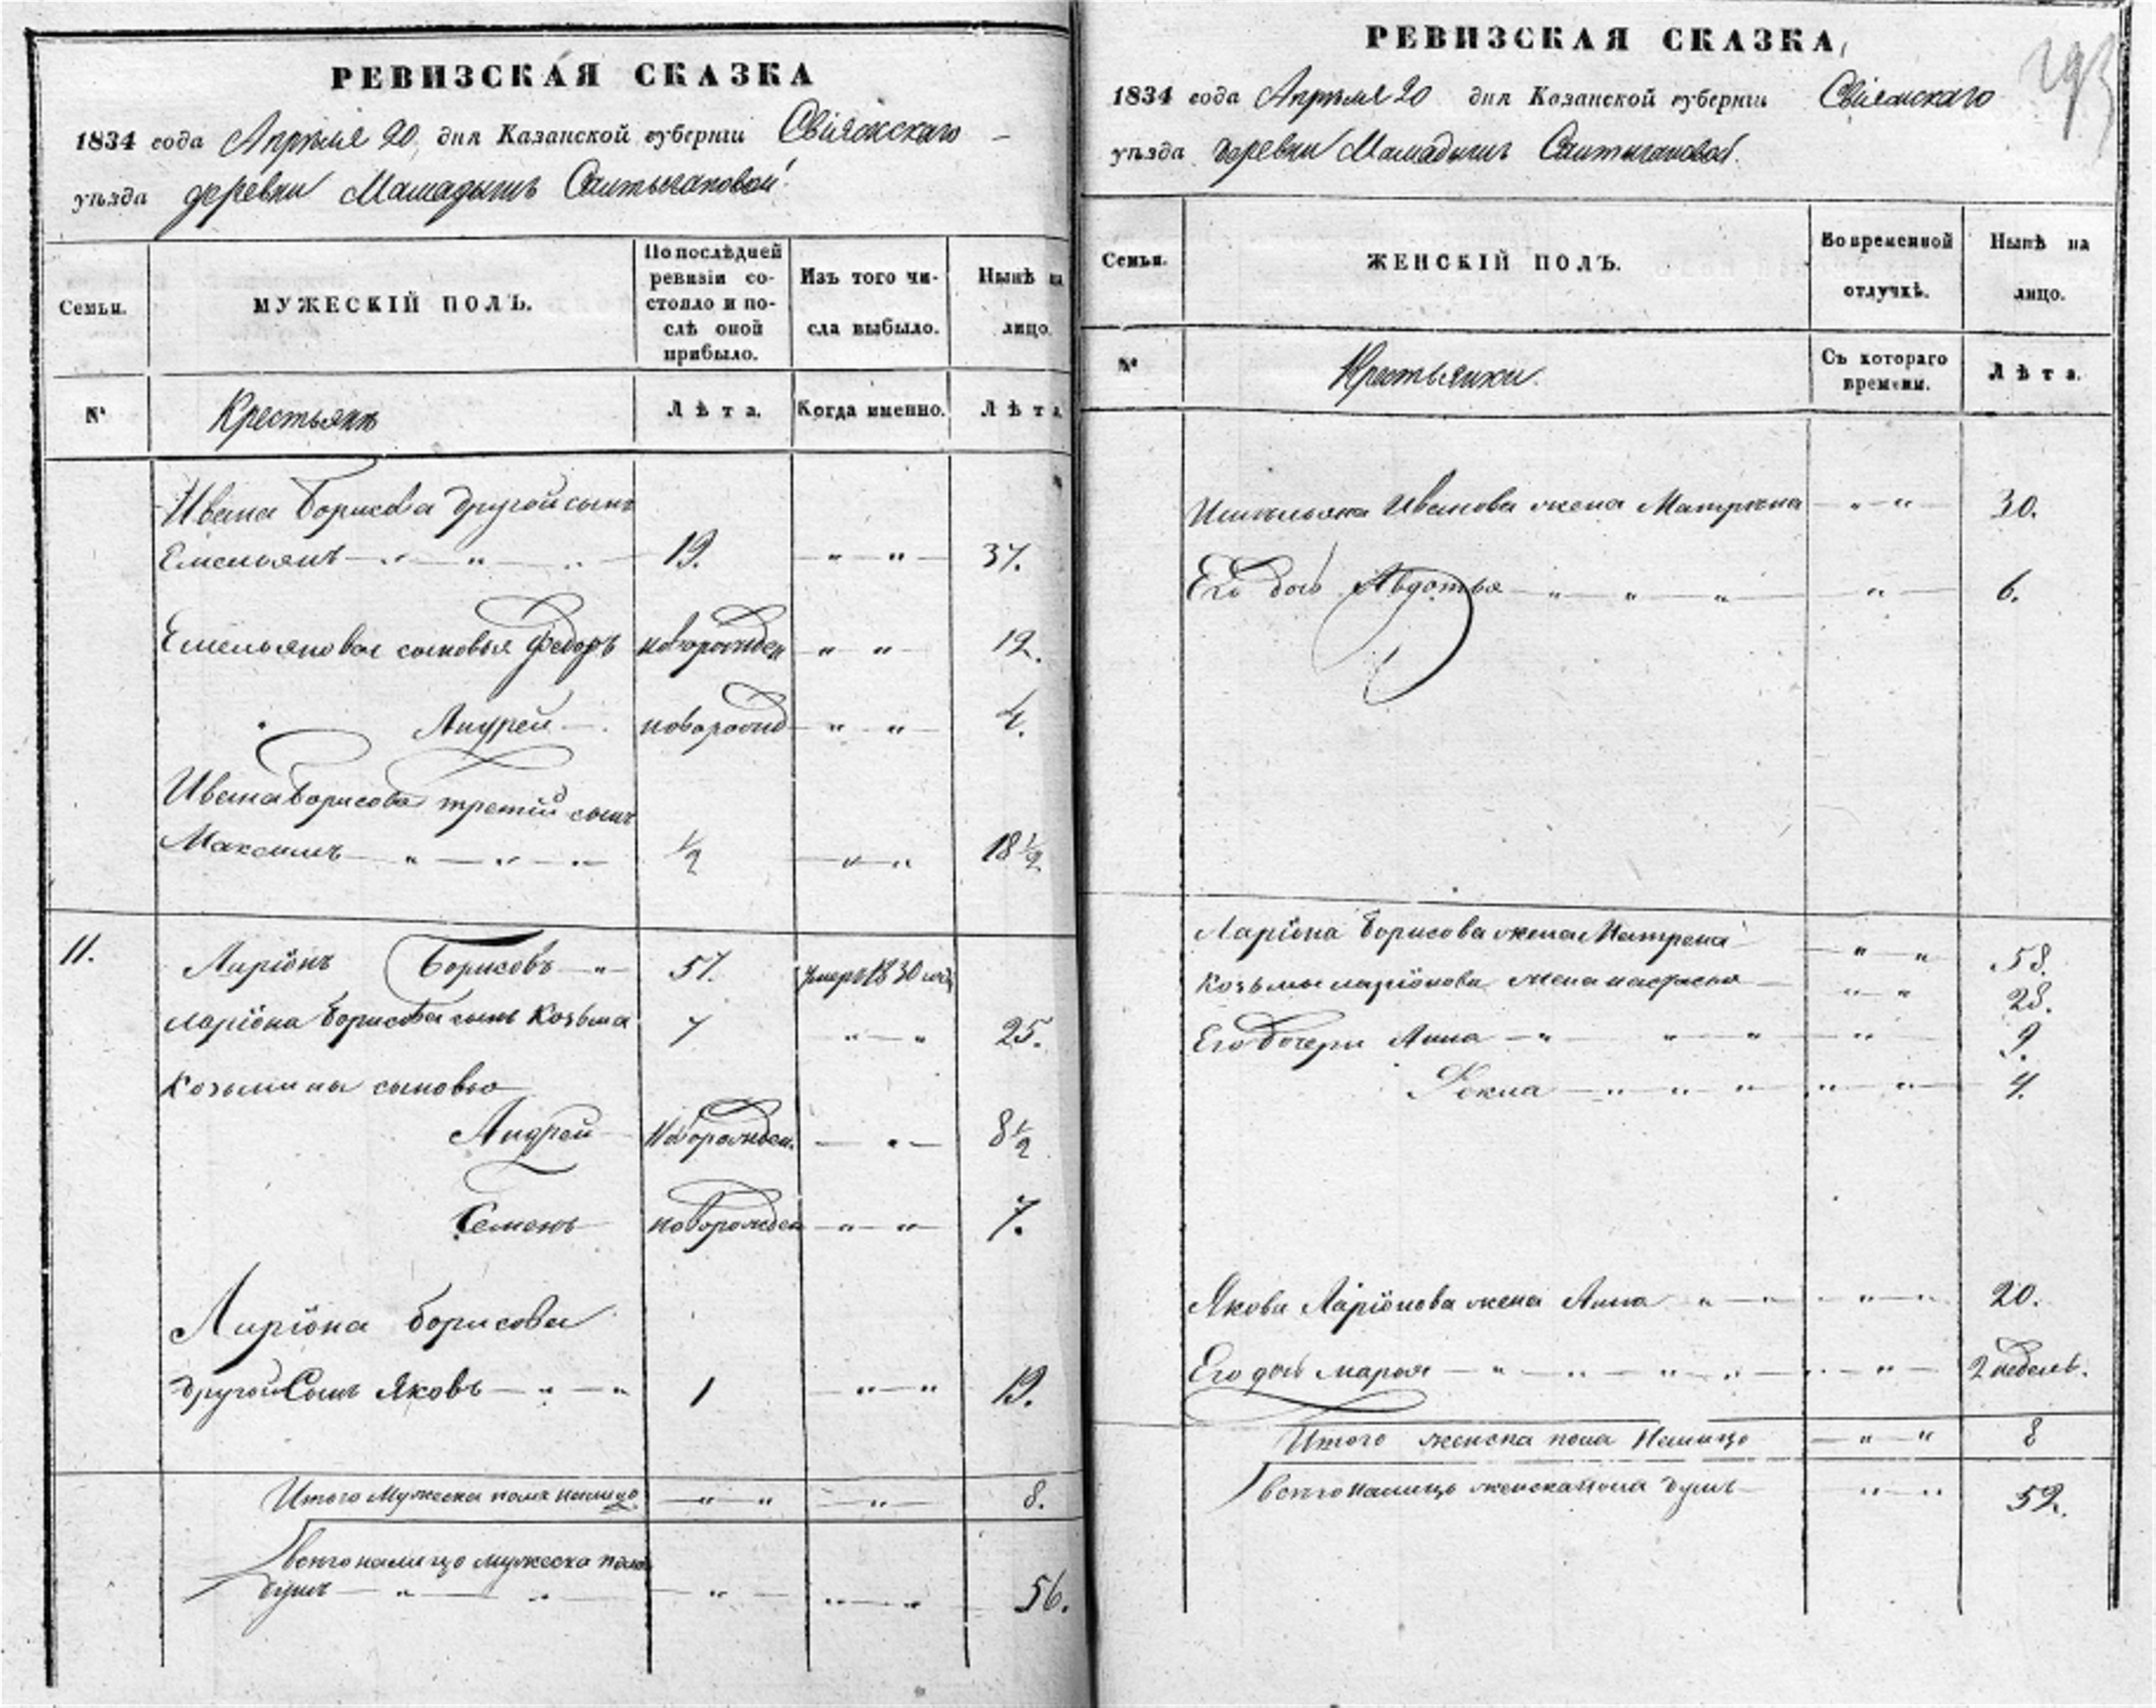 РЕВИЗСКАЯ СКАЗКА
1834 года Апреля 20 дня Казанской губернiи Свiяжскаго
уѣзда деревни Мамадышъ Саитыгановой
Семьи.
МУЖЕСКІЙ ПОЛЪ.
По послѣдней ревизіи состояло и послѣ оной прибыло.
Изъ того числа выбыло.
Нынѣ на лицо.
№
Крестьянъ
Лѣта.
Когда именно.
Лѣта
Ивана Борисова другой сынъ
Емельянъ — " — " — " 19. — " — " — 37.
Емельяновы сыновья Федоръ новорожден " " 12.
Андрей — новорожд " — " — 4.
Ивана Борисова третій сынъ
Максимъ — " — " — " ½ — " — " 18 ½
11. Ларіонъ Борисовъ — " 57. умеръ 1830 года
Ларіона Борисова сынъ Козьма 7 " — " 25.
Козьмины сыновья
Андрей Новорожден. — " — 8 ½
Семенъ новорожден — " — " — 7.
Ларіона Борисова
другой Сынъ Яковъ — " — " 1 — " — " 19.
Итого Мужеска пола налицо — " — " — " — 8.
Всего налицо мужеска пола
душъ — " — " — " — " — " 56.
РЕВИЗСКАЯ СКАЗКА,
1834 года Апреля 20 дня Казанской губернiи Свіяжскаго
уѣзда деревни Мамадышъ Саитыгановой.
Семьи.
ЖЕНСКІЙ ПОЛЪ.
Во временной отлучкѣ.
Нынѣ на лицо.
№
Крестьянки.
Съ котораго времени.
Лѣта.
Емельяна Иванова жена Матрена — " — " — 30.
Его дочь Авдотья — " — " — " — " — 6.
Ларіона Борисова жена Матрена — " — " 58.
Козьмы ларіонова жена настасья — " — " 28.
Его дочери Анна — " — " — " — " — 9.
Фекла — " — " — " — " — " — 4.
Якова Ларіонова жена Анна " — " — " — " 20.
Его дочь марья — " — " — " — " — " — 2 недель.
Итого женска пола Налицо — " — " 8
Всего налицо женска пола душъ — " — " 52.